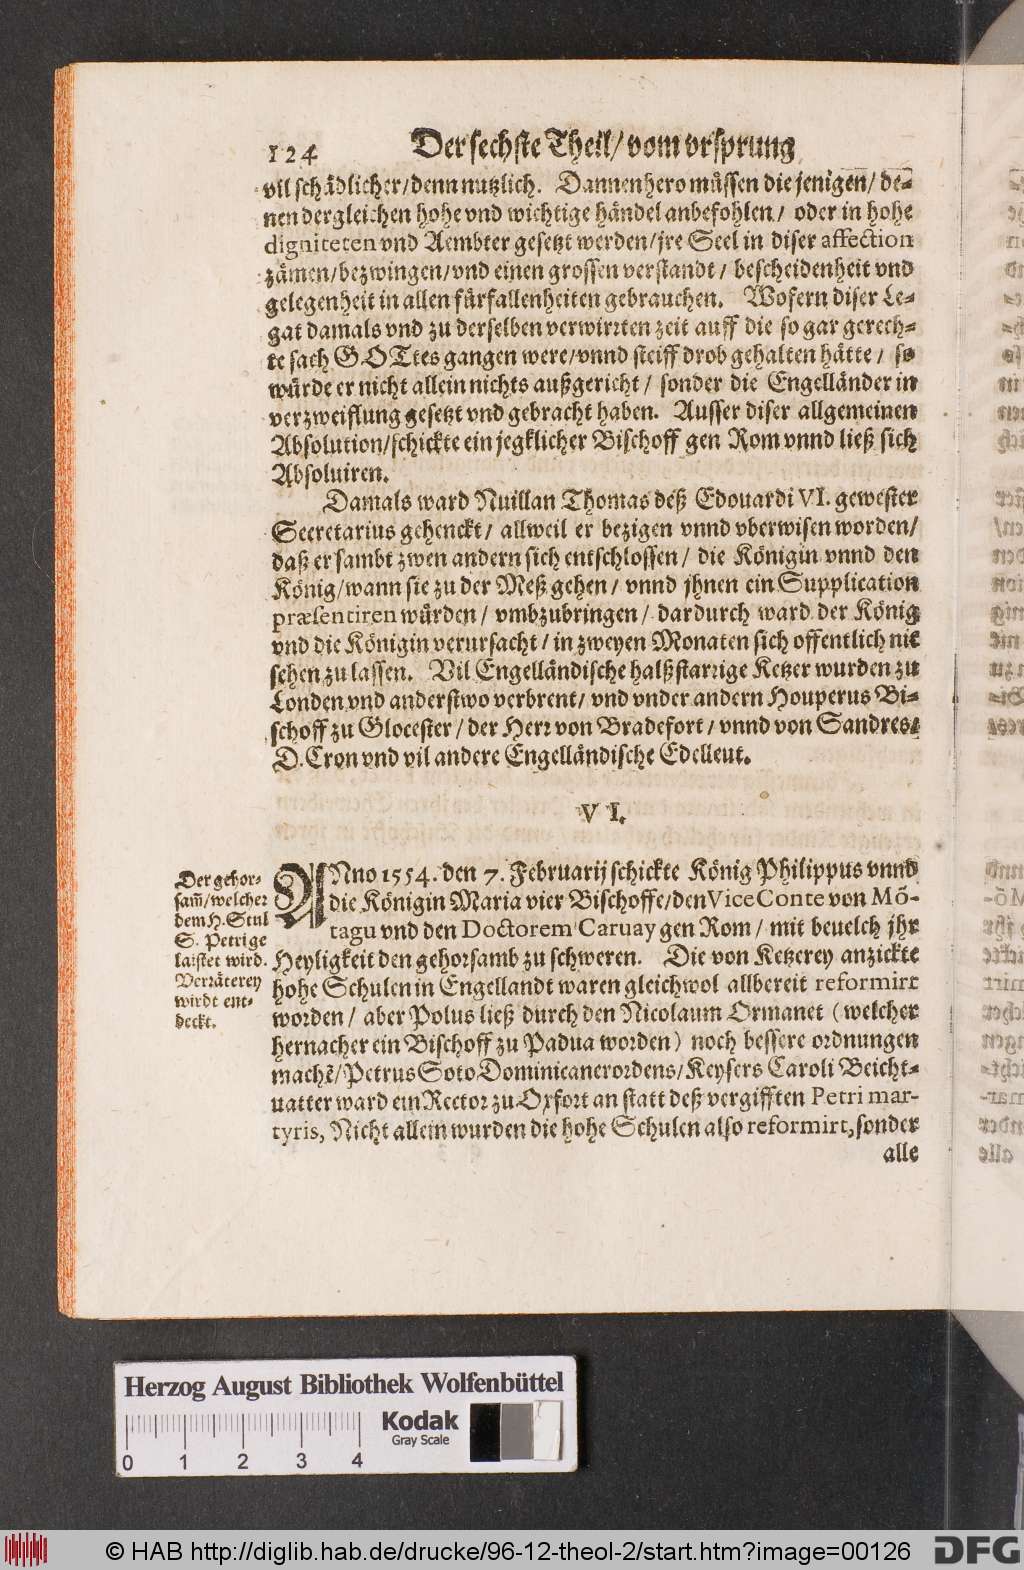 124 Der sechste Theil/ vom vrsprung
vil schädlicher/ denn nutzlich. Dannenhero müssen die jenigen/ de-
nen dergleichen hohe vnd wichtige händel anbefohlen/ oder in hohe
digniteten vnd Aembter gesetzt werden/ jre Seel in diser affection
zämen/ bezwingen/ vnd einen grossen verstandt/ bescheidenheit vnd
gelegenheit in allen fürfallenheiten gebrauchen. Wofern diser Le-
gat damals vnd zu derselben verwirrten zeit auff die so gar gerech-
te sach GOTtes gangen were/ vnnd steiff drob gehalten hätte/ so
würde er nicht allein nichts außgericht/ sonder die Engelländer in
verzweiflung gesetzt vnd gebracht haben. Ausser diser allgemeinen
Absolution/ schickte ein jegklicher Bischoff gen Rom vnnd ließ sich
Absoluiren.
Damals ward Nuillan Thomas deß Edouardi VI. gewester
Secretarius gehenckt/ allweil er bezigen vnnd vberwisen worden/
daß er sambt zwen andern sich entschlossen/ die Königin vnnd den
König/ wann sie zu der Meß gehen/ vnnd jhnen ein Supplication
præsentiren würden/ vmbzubringen/ dardurch ward der König
vnd die Königin verursacht/ in zweyen Monaten sich offentlich nit
sehen zu lassen. Vil Engelländische halßstarrige Ketzer wurden zu
Londen vnd anderstwo verbrent/ vnd vnder andern Houperus Bi-
schoff zu Glocester/ der Herr von Bradefort/ vnnd von Sandres/
D. Cron vnd vil andere Engelländische Edelleut.
VI.
Der gehor-
sam̃/ welcher
dem H. Stul
S. Petri ge
laistet wird.
Verräterey
wirdt ent-
deckt.
ANno 1554. den 7. Februarij schickte König Philippus vnnd
die Königin Maria vier Bischoffe/ den Vice Conte von Mõ-
tagu vnd den Doctorem Caruay gen Rom/ mit beuelch jhr
Heyligkeit den gehorsamb zu schweren. Die von Ketzerey anzickte
hohe Schulen in Engellandt waren gleichwol allbereit reformirt
worden/ aber Polus ließ durch den Nicolaum Ormanet (welcher
hernacher ein Bischoff zu Padua worden) noch bessere ordnungen
machẽ/ Petrus Soto Dominicanerordens/ Keysers Caroli Beicht-
uatter ward ein Rector zu Oxfort an statt deß vergifften Petri mar-
tyris, Nicht allein wurden die hohe Schulen also reformirt, sonder
alle
Herzog August Bibliothek Wolfenbüttel
Kodak
Gray Scale
0 1 2 3 4
© HAB http://diglib.hab.de/drucke/96-12-theol-2/start.htm?image=00126
DFG